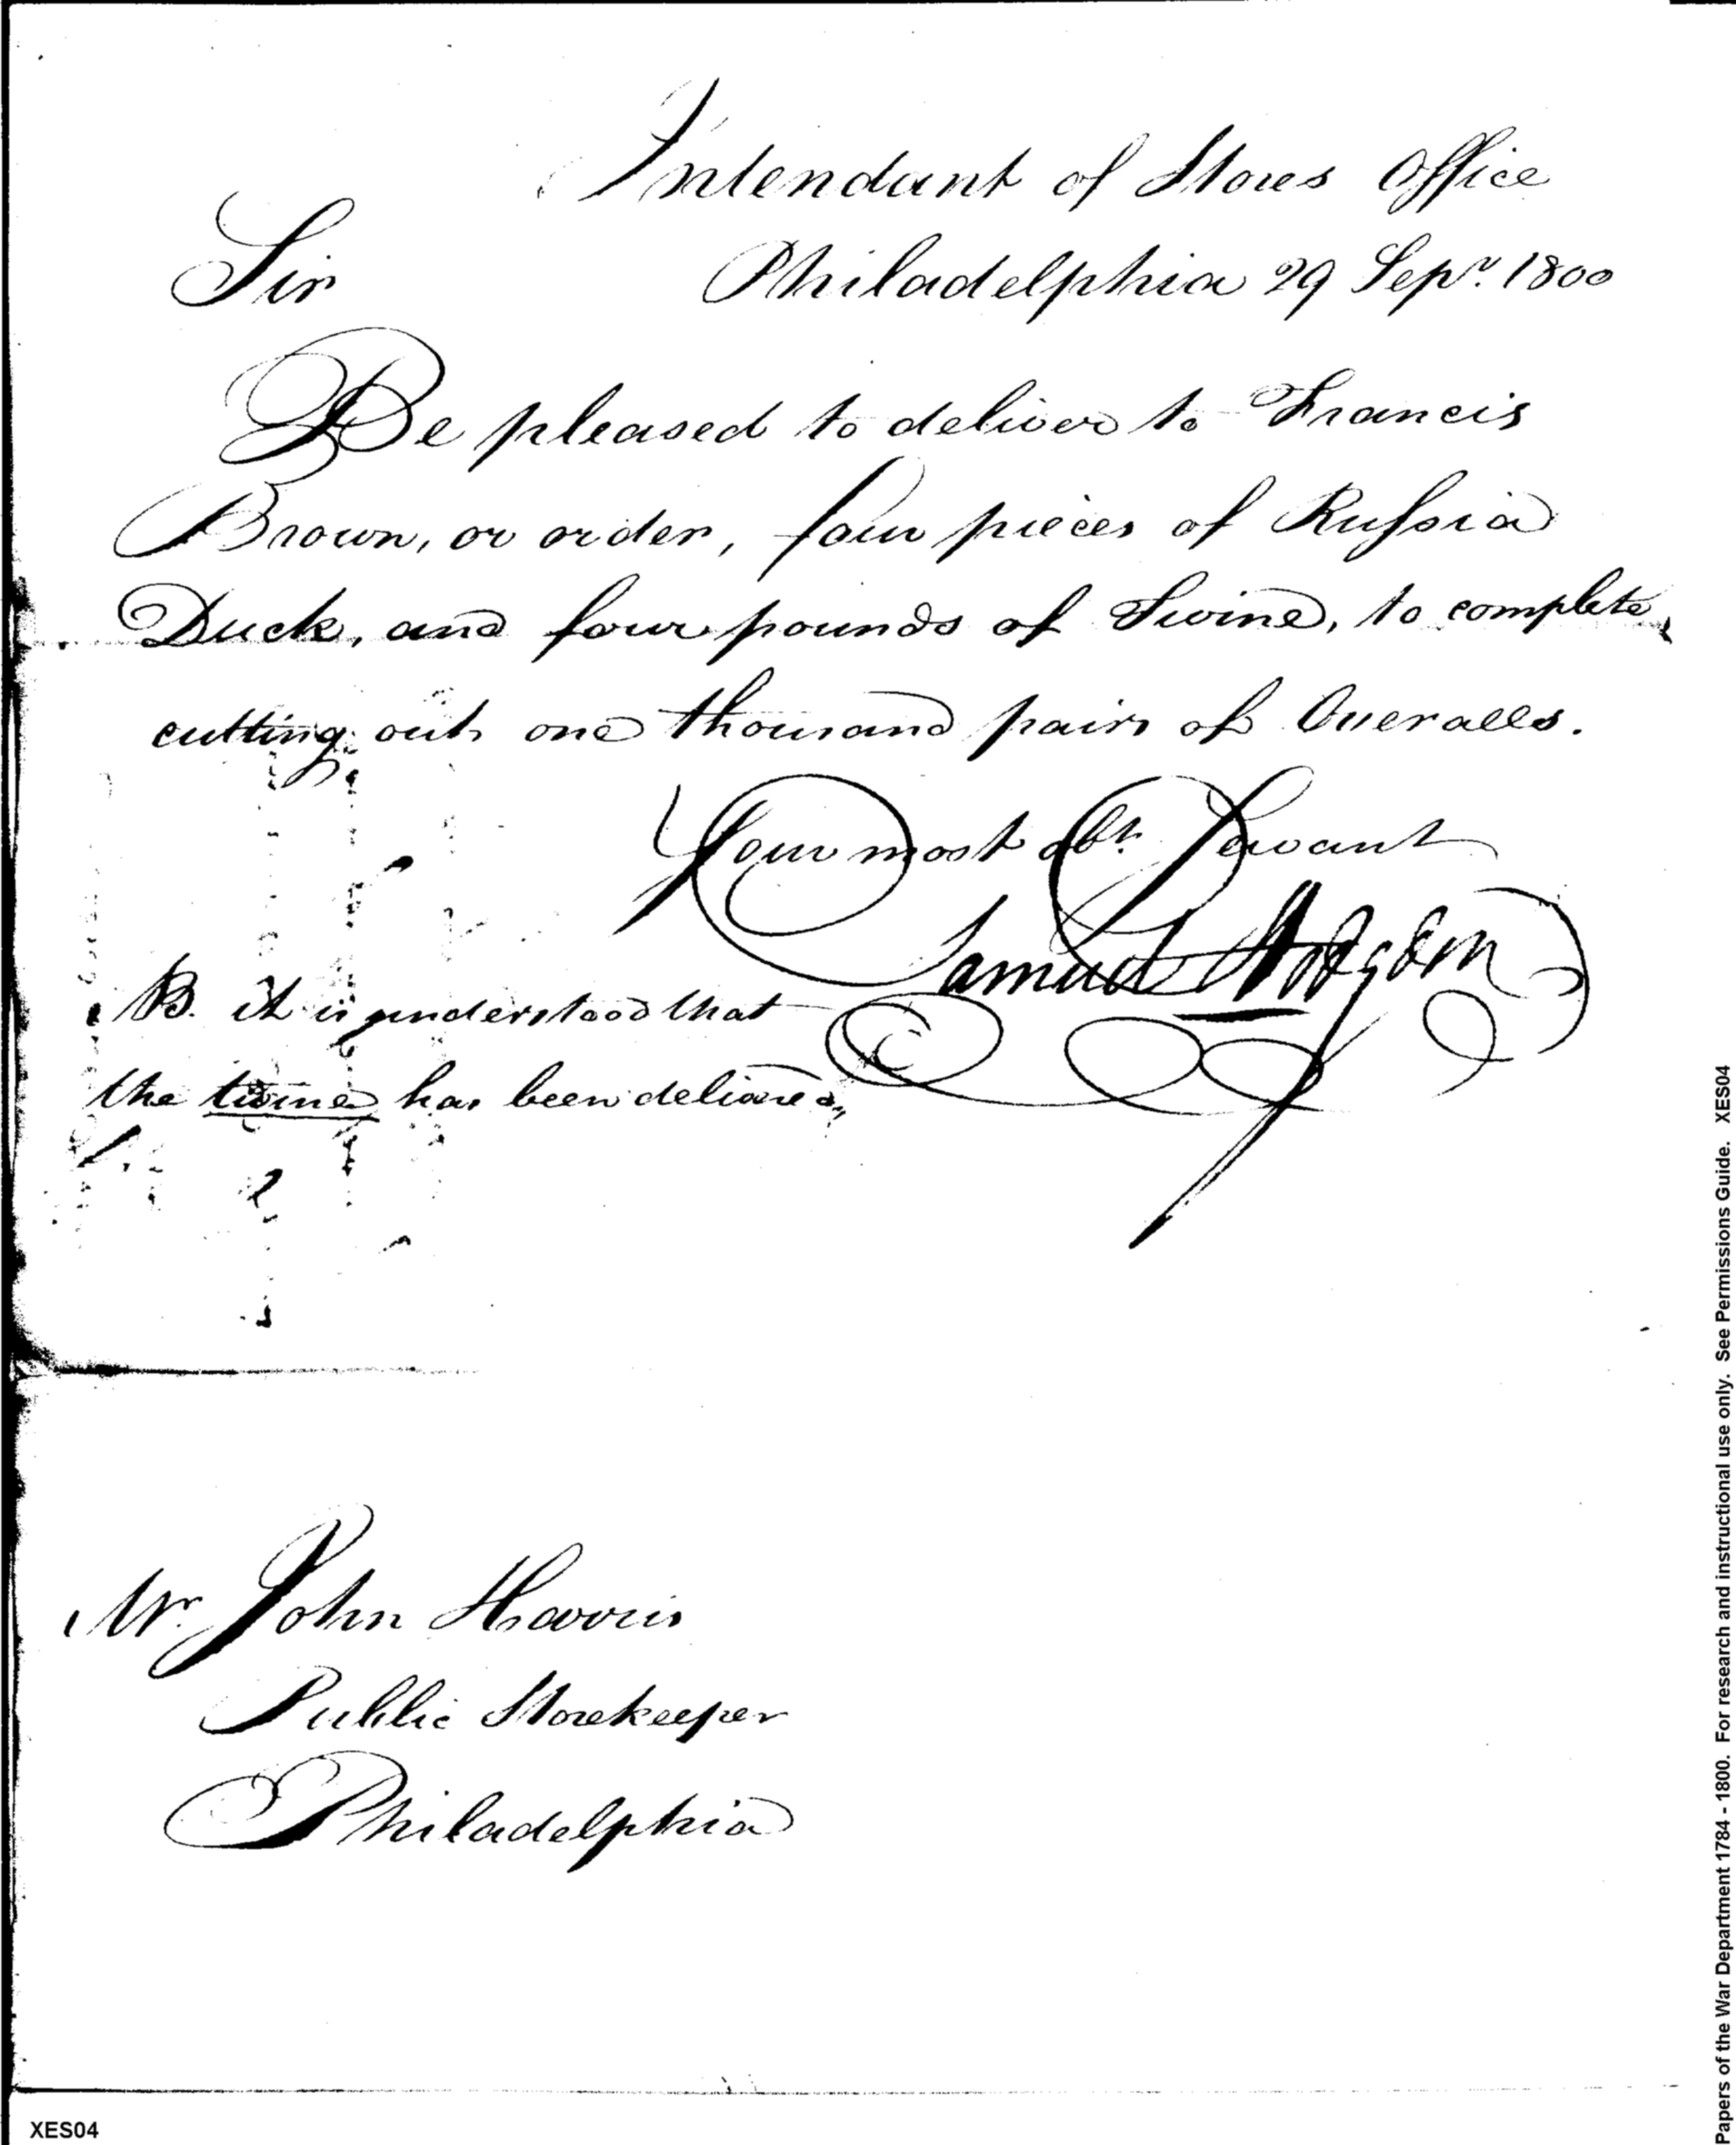 Intendant of Stores Office
Sir
Philadelphia 29 Sepr. 1800
Be pleased to deliver to Francis
Brown, or order, four pieces of Russia
Duck, and four pounds of Twine, to complete
cutting out one thousand pairs of Overalls.
Your most obt. Servant
Samuel Hodgdon
NB. it is understood that
the twine has been delivered
Mr. John Harris
Public Storekeeper
Philadelphia
XES04
Papers of the War Department 1784 - 1800. For research and instructional use only. See Permissions Guide. XES04